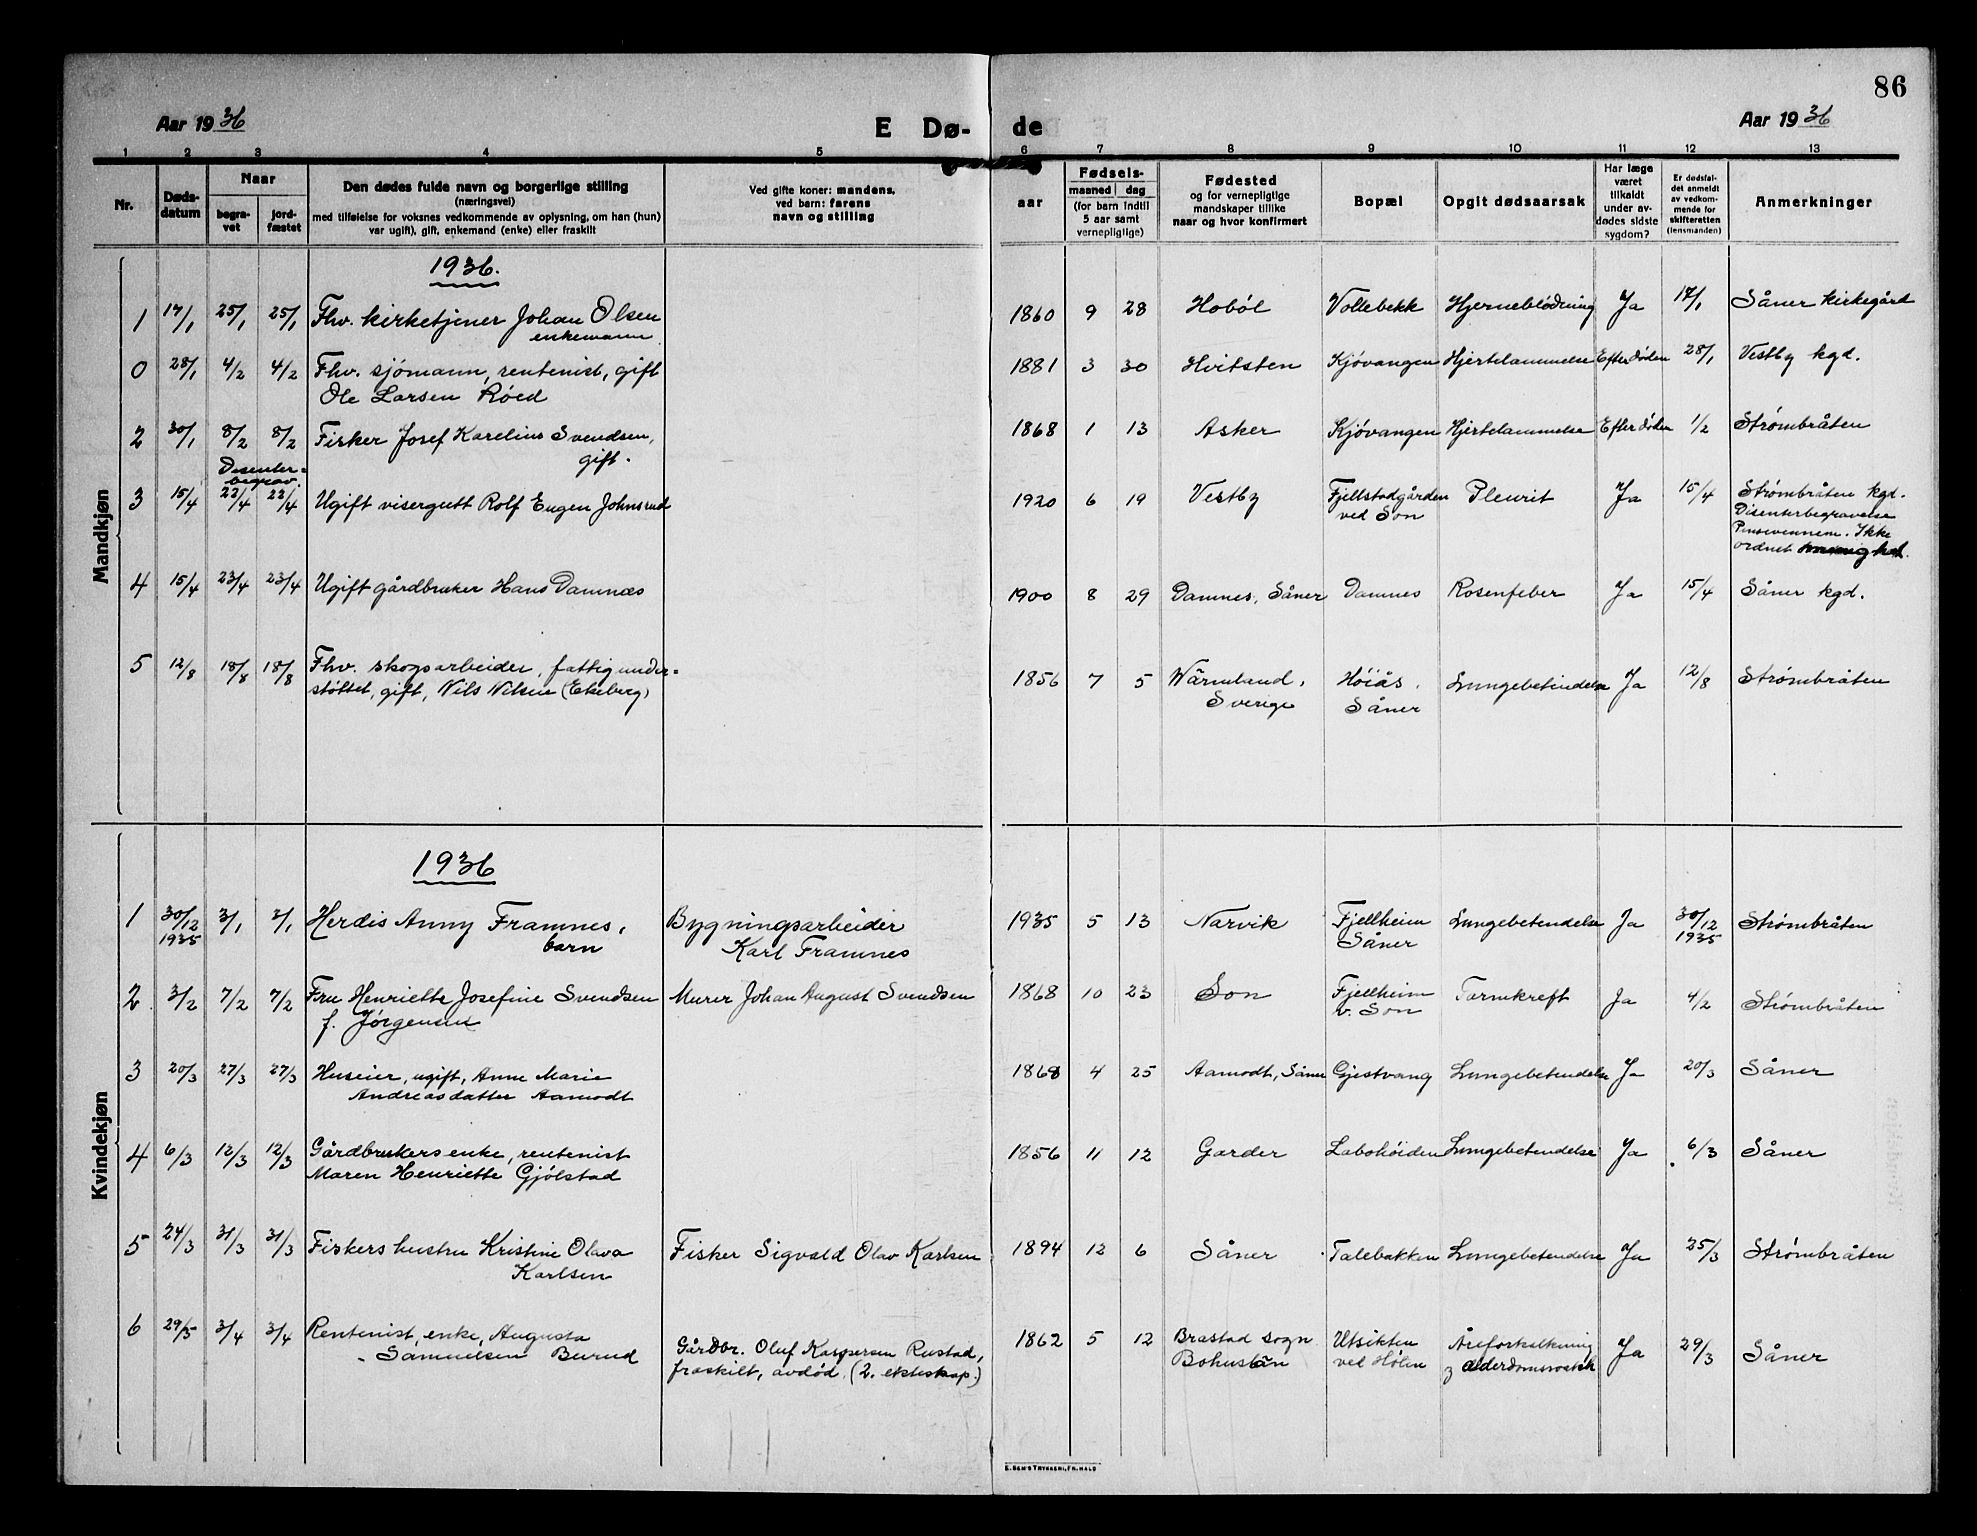 86
Aar 1936
E Dø- de
Aar 1936
1 2 3 4 5 6 7 8 9 10 11 12 13
Nr.
Døds-
datum
Naar
begra-
vet
jord-
fæstet
Den dødes fulde navn og borgerlige stilling
(næringsvei)
med tilføielse for voksnes vedkommende av oplysning, om han (hun)
var ugift), gift, enkemand (enke) eller fraskilt
Ved gifte koner: mandens,
ved barn: farens
navn og stilling
aar
Fødsels-
maaned dag
(for barn indtil
5 aar samt
vernepligtige)
Fødested
og for vernepligtige
mandskaper tillike
naar og hvor konfirmert
Bopæl
Opgit dødsaarsak
Har læge
været
tilkaldt
under av-
dødes sidste
sygdom?
Er dødsfal-
det anmeldt
av vedkom-
mende for
skifteretten
(lensmanden)
Anmerkninger
Mandkjøn
1936.
1 17/1 25/1 25/1 Fhv. kirketjener Johan Olsen 1860 9 28 Hobøl Vollebekk Hjerneblødning Ja 17/1 Såner kirkegård
enkemann
0 28/1 4/2 4/2 Fhv. sjømann, rentenist, gift 1881 3 30 Hvitsten Kjøvangen Hjertelammelse Efter døden 28/1 Vestby kgd.
Ole Larsen Røed
2 30/1 8/2 8/2 Fisker Josef Karelius Svendsen, 1868 1 13 Asker Kjøvangen Hjertelammelse Efter døden 1/2 Strømbråten
gift.
Disenter-
begrav.
3 15/4 22/4 22/4 Ugift visergutt Rolf Eugen Johnsrud 1920 6 19 Vestby Fjellstadgården Pleurit Ja 15/4 Strømbråten kgd.
ved Son Disenterbegravelse
Pinsevennene. Ikke
ordnet
4 15/4 23/4 23/4 Ugift gårdbruker Hans Damnes 1900 8 29 Damnes, Såner Damnes Rosenfeber Ja 15/4 Såner kgd.
5 12/8 18/8 18/8 Fhv. skogsarbeider, fattigunder- 1856 7 5 Wärmland, Høiås, Lungebetindelse Ja 12/8 Strømbråten
støttet, gift, Nils Nilsen (Ekeberg) Sverige Såner
Kvindekjøn
1936
1 30/12 3/1 3/1 Herdis Anny Framnes, Bygningsarbeider 1935 5 13 Narvik Fjellheim Lungebetendelse Ja 30/12 Strømbråten
1935 barn Karl Framnes Såner 1935
2 3/2 7/2 7/2 Fru Henriette Josefine Svendsen Murer Johan August Svendsen 1868 10 23 Son Fjellheim Tarmkreft Ja 4/2 Strømbråten
f. Jørgensen v. Son
3 20/3 27/3 27/3 Huseier, ugift, Anne Marie 1868 4 25 Aamodt, Såner Gjestvang Lungebetendelse Ja 20/3 Såner
Andreasdatter Aamodt
4 6/3 12/3 12/3 Gårdbrukers enke, rentenist 1856 11 12 Garder Labohøiden Lungebetendelse Ja 6/3 Såner
Maren Henriette Gjølstad
5 24/3 31/3 31/3 Fiskers hustru Kristine Olava Fisker Sigvald Olav Karlsen 1894 12 6 Såner Talebakken Lungebetendelse Ja 25/3 Strømbråten
Karlsen
6 29/3 3/4 3/4 Rentenist, enke, Augusta Gårdbr. Oluf Kaspersen Rustad, 1862 5 12 Brastad sogn Utsikten Åreforkalkning Ja 29/3 Såner
Samuelsen Burud fraskilt, avdød. (2. ekteskap.) Bohuslän ved Hølen
E. SEM'S TRYKKERI, FR.HALD